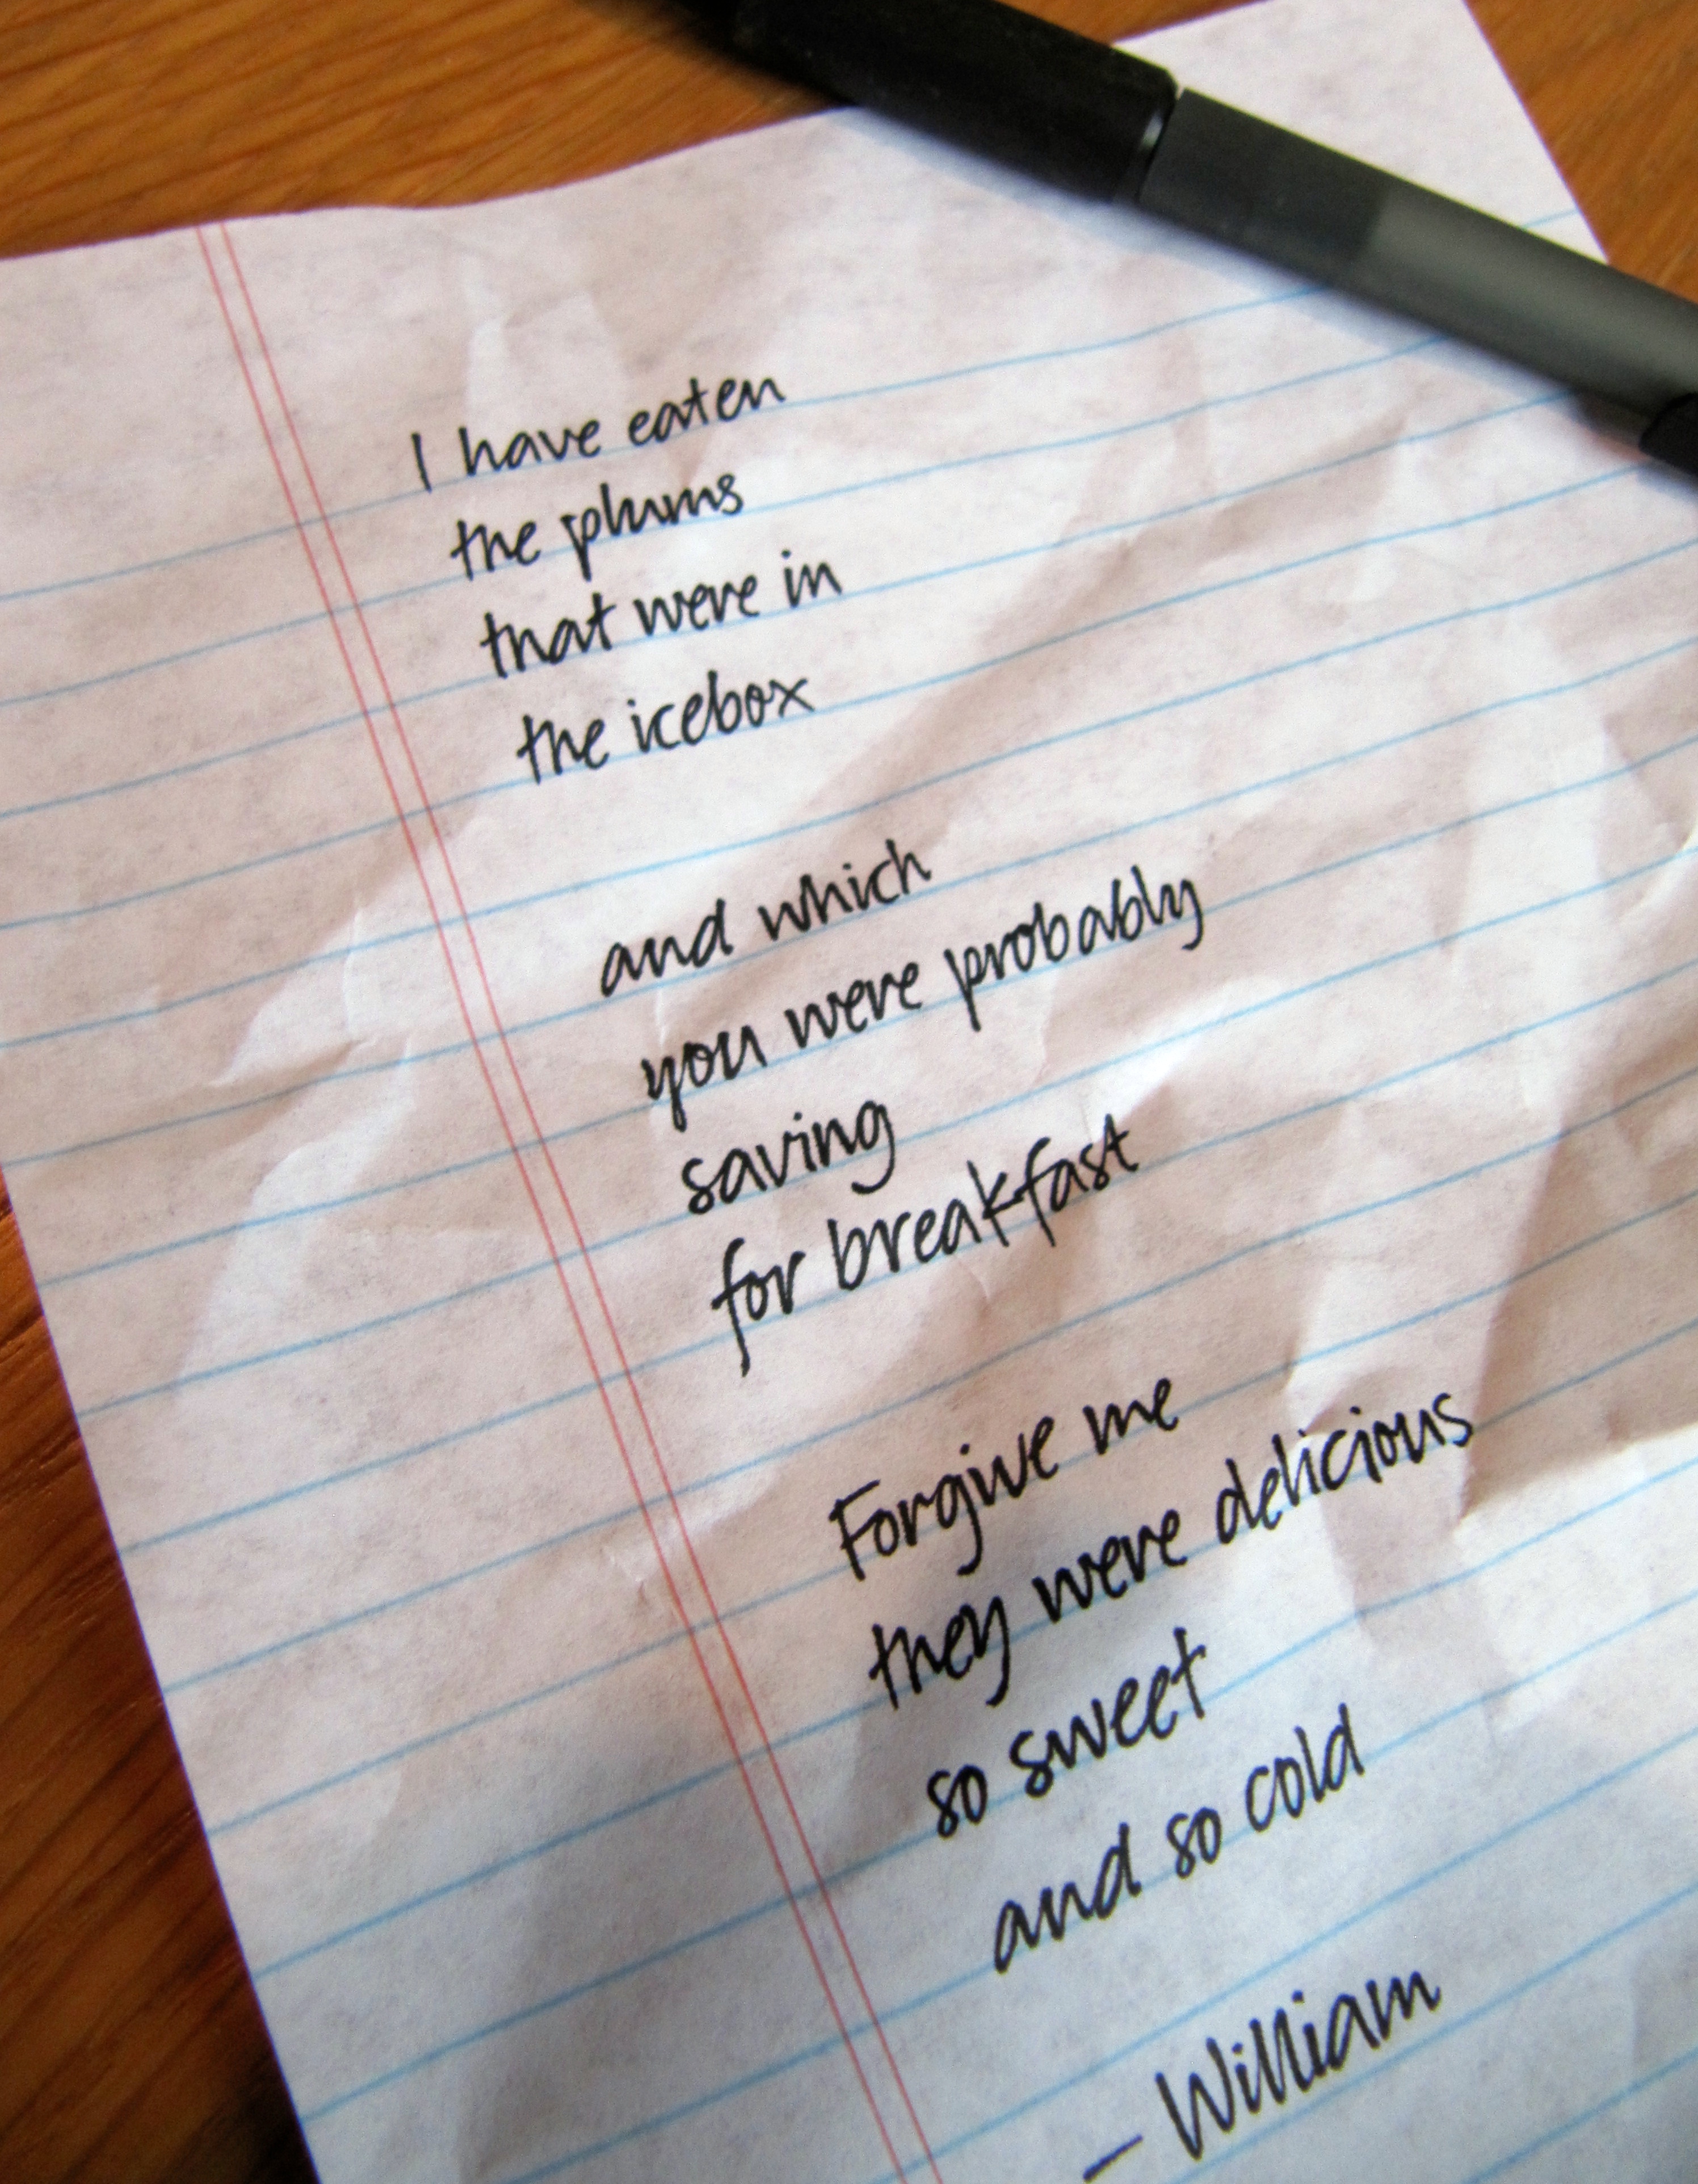 I have eaten
the plums
that were in
the icebox
and which
you were probably
saving
for breakfast
Forgive me
they were delicious
so sweet
and so cold
– William